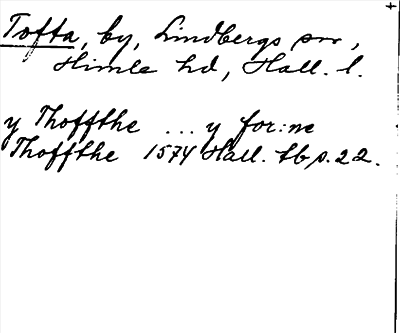 Tofta, by, Lindbergs sn,
Himle hd, Hall. l.
y Thoffthe ... y for:ne
Thoffthe 1574 Hall. tb s. 22.